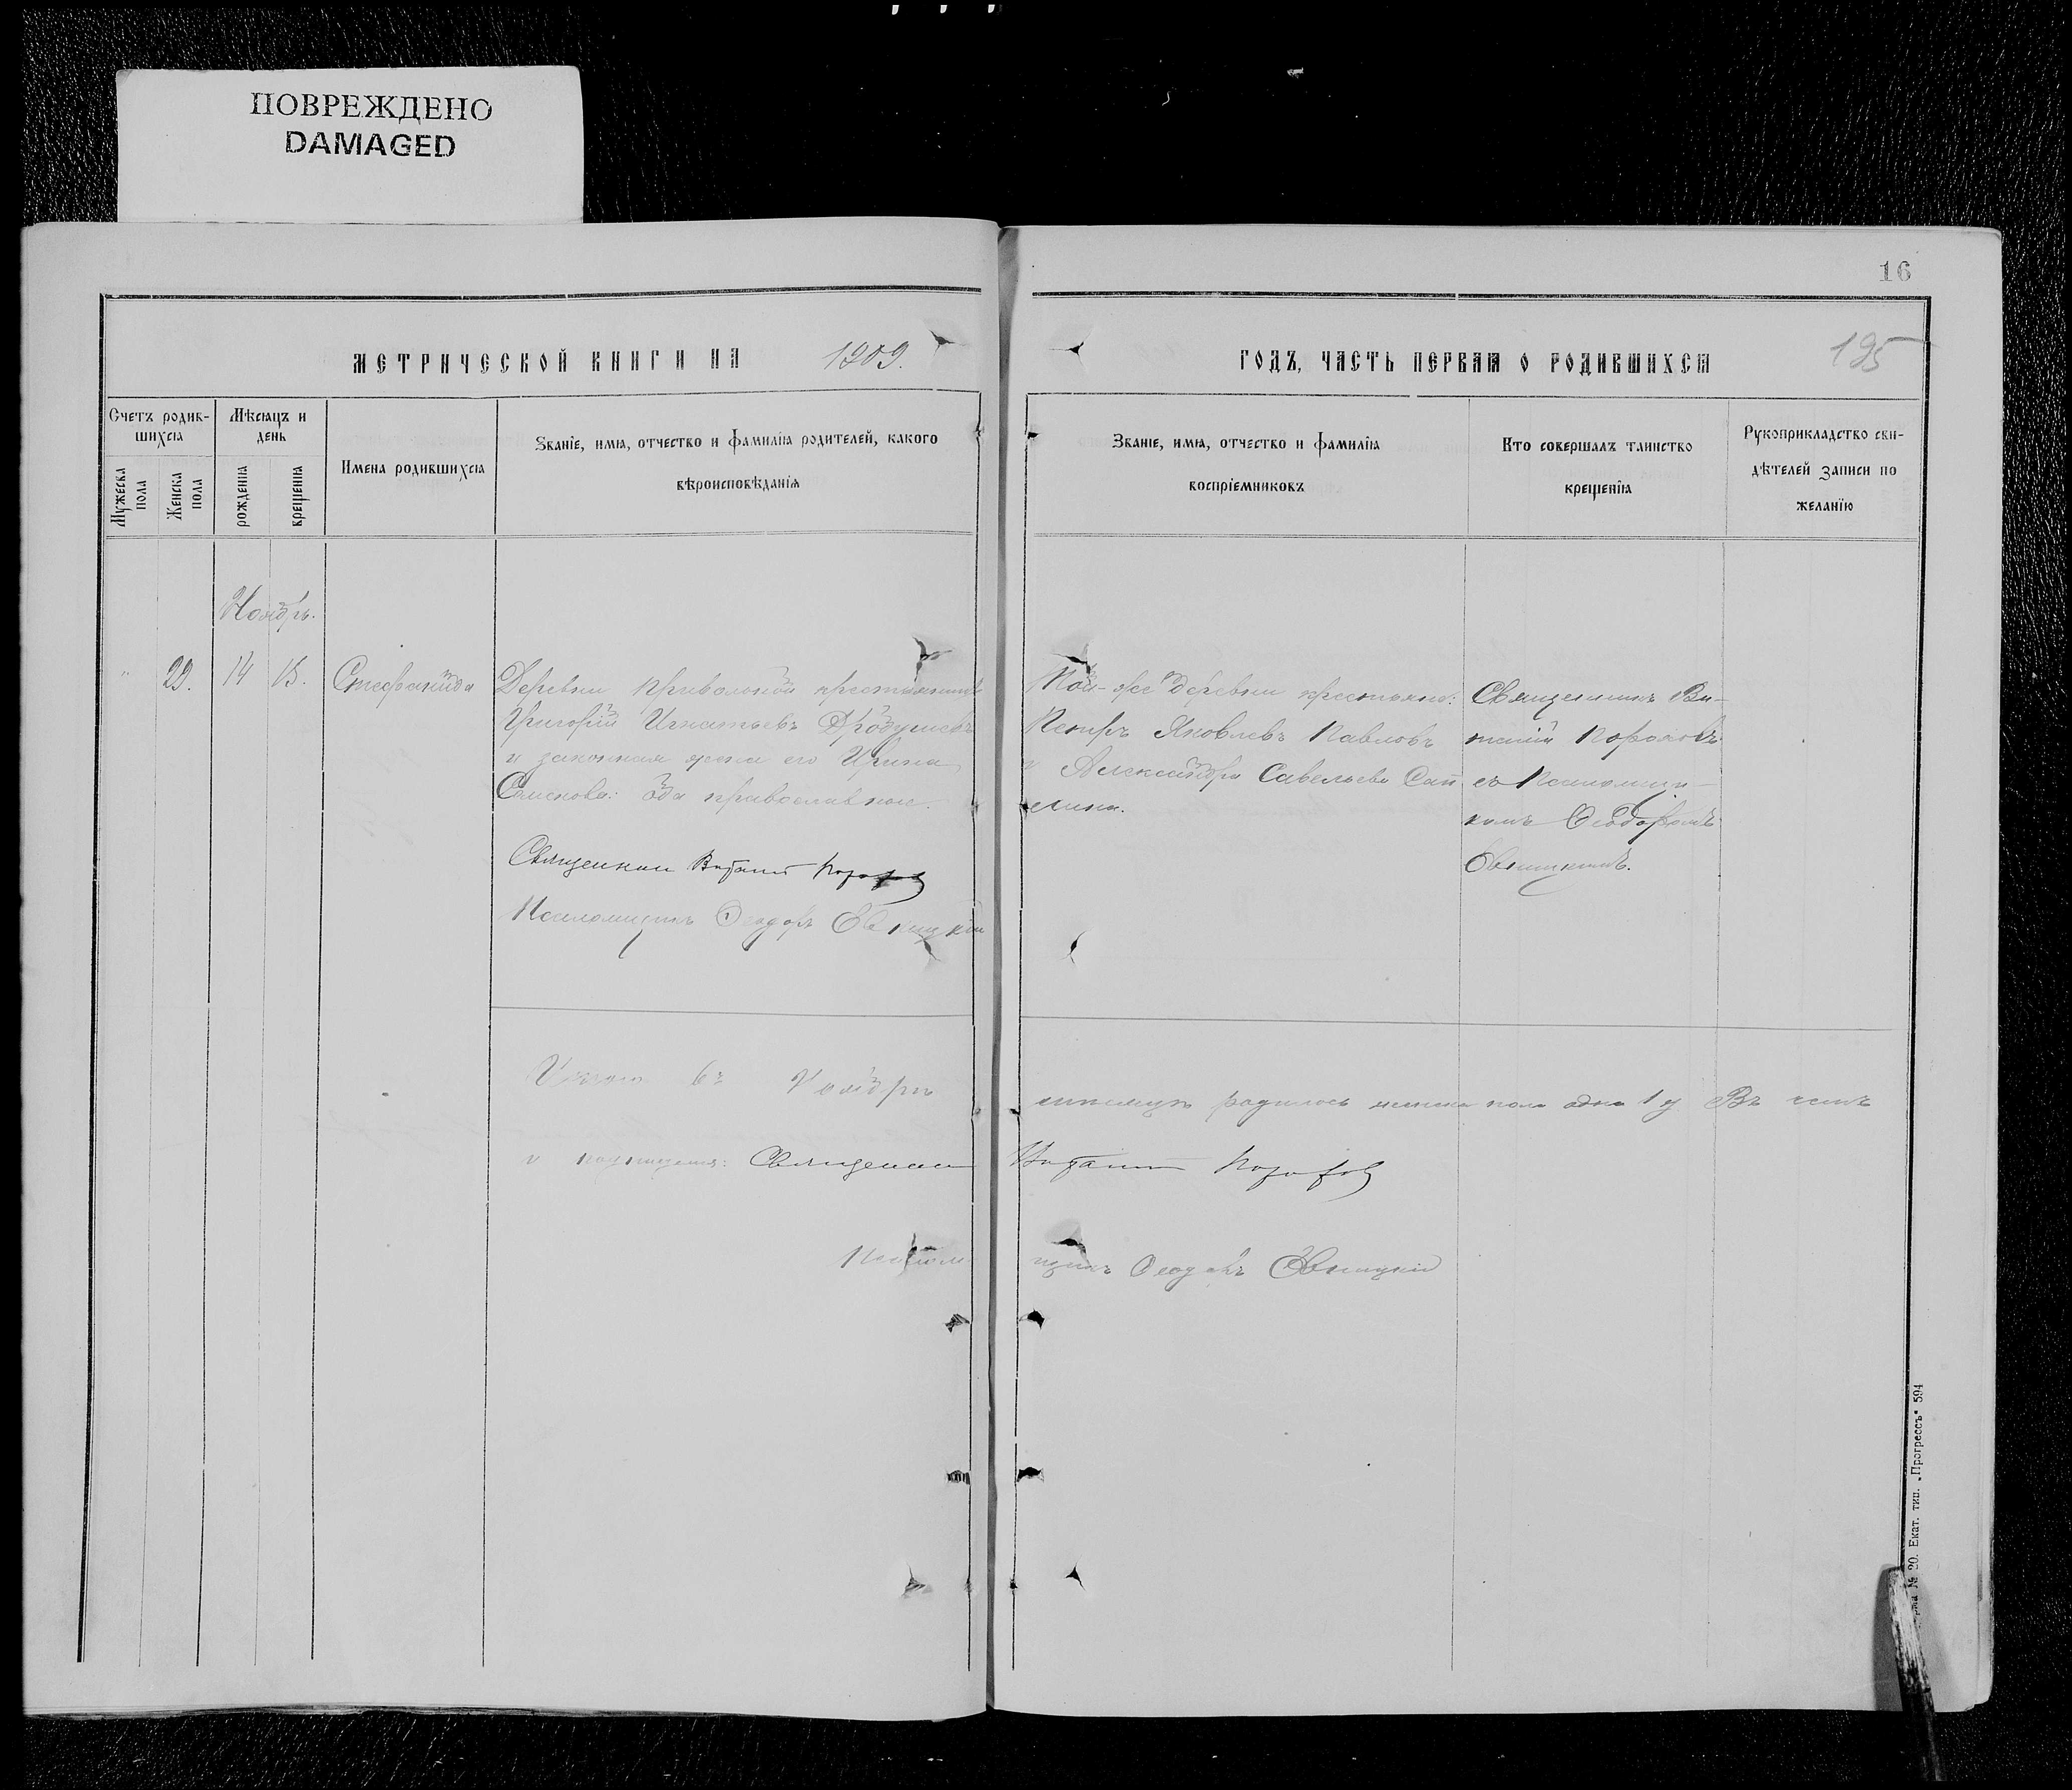 ПОВРЕЖДЕНО
DAMAGED
16
МЕТРИЧЕСКОЙ КНИГИ НА 1909.
ГОДЪ, ЧАСТЬ ПЕРВАЯ О РОДИВШИХСЯ
195
Счетъ родив-
шихся
Мужеска
пола
Женска
пола
Мѣсяцъ и
день
рожденія
крещенія
Имена родившихся
Званіе, имя, отчество и фамилія родителей, какого
вѣроисповѣданія
Званіе, имя, отчество и фамилія
воспріемниковъ
Кто совершалъ таинство
крещенія
Рукоприкладство сви-
дѣтелей записи по
желанію
Ноябрь.
" 29. 14 15. Стефанида
Деревни Привольной крестьянинъ
Григорій Игнатьевъ
и законная жена его Ирина
оба православные.
Священник
Псаломщикъ Ѳеодоръ
Той-же деревни крестьяне:
Петръ Яковлевъ Павловъ
и Александра Савельева
Священникъ Ви-
талій
съ Псаломщи-
комъ Ѳеодоромъ
Итого въ Ноябрѣ
мѣсяцѣ родилось женска пола одна 1 Въ чемъ
и подпишемся: Священник
Псалом
щикъ Ѳеодоръ
№ 20. Екат. тип. „Прогрессъ“ 594